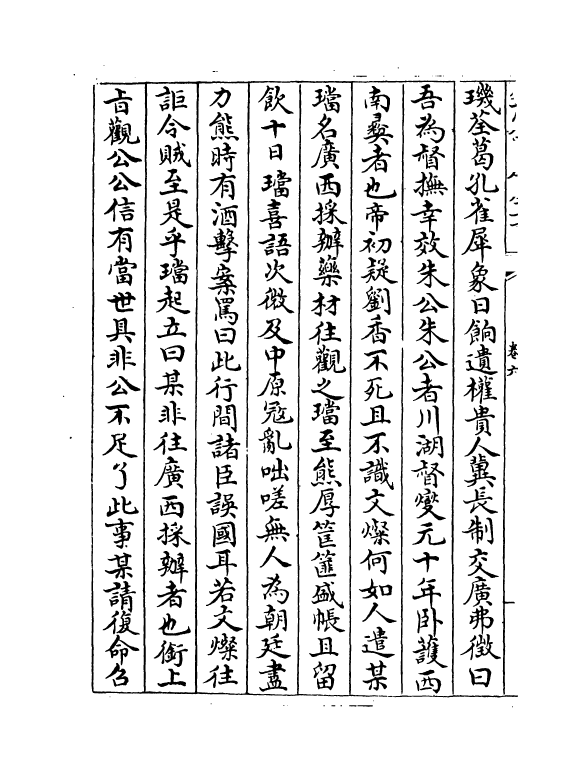 卷六
璣荃葛孔雀犀象日餉遺權貴人冀長制交廣弗徵曰
吾為督撫幸效朱公朱公者川湖督燮元十年卧護西
南彛者也帝初疑劉香不死且不識文燦何如人遣某
璫名廣西採辦藥材往觀之璫至熊厚筐篚盛帳且留
飲十日璫喜語次微及中原冦亂咄嗟無人為朝廷盡
力熊時有酒擊案罵曰此行間諸臣誤國耳若文燦往
詎令賊至是乎璫起立曰某非往廣西採辦者也銜上
㫖觀公公信有當世具非公不足了此事某請復命召